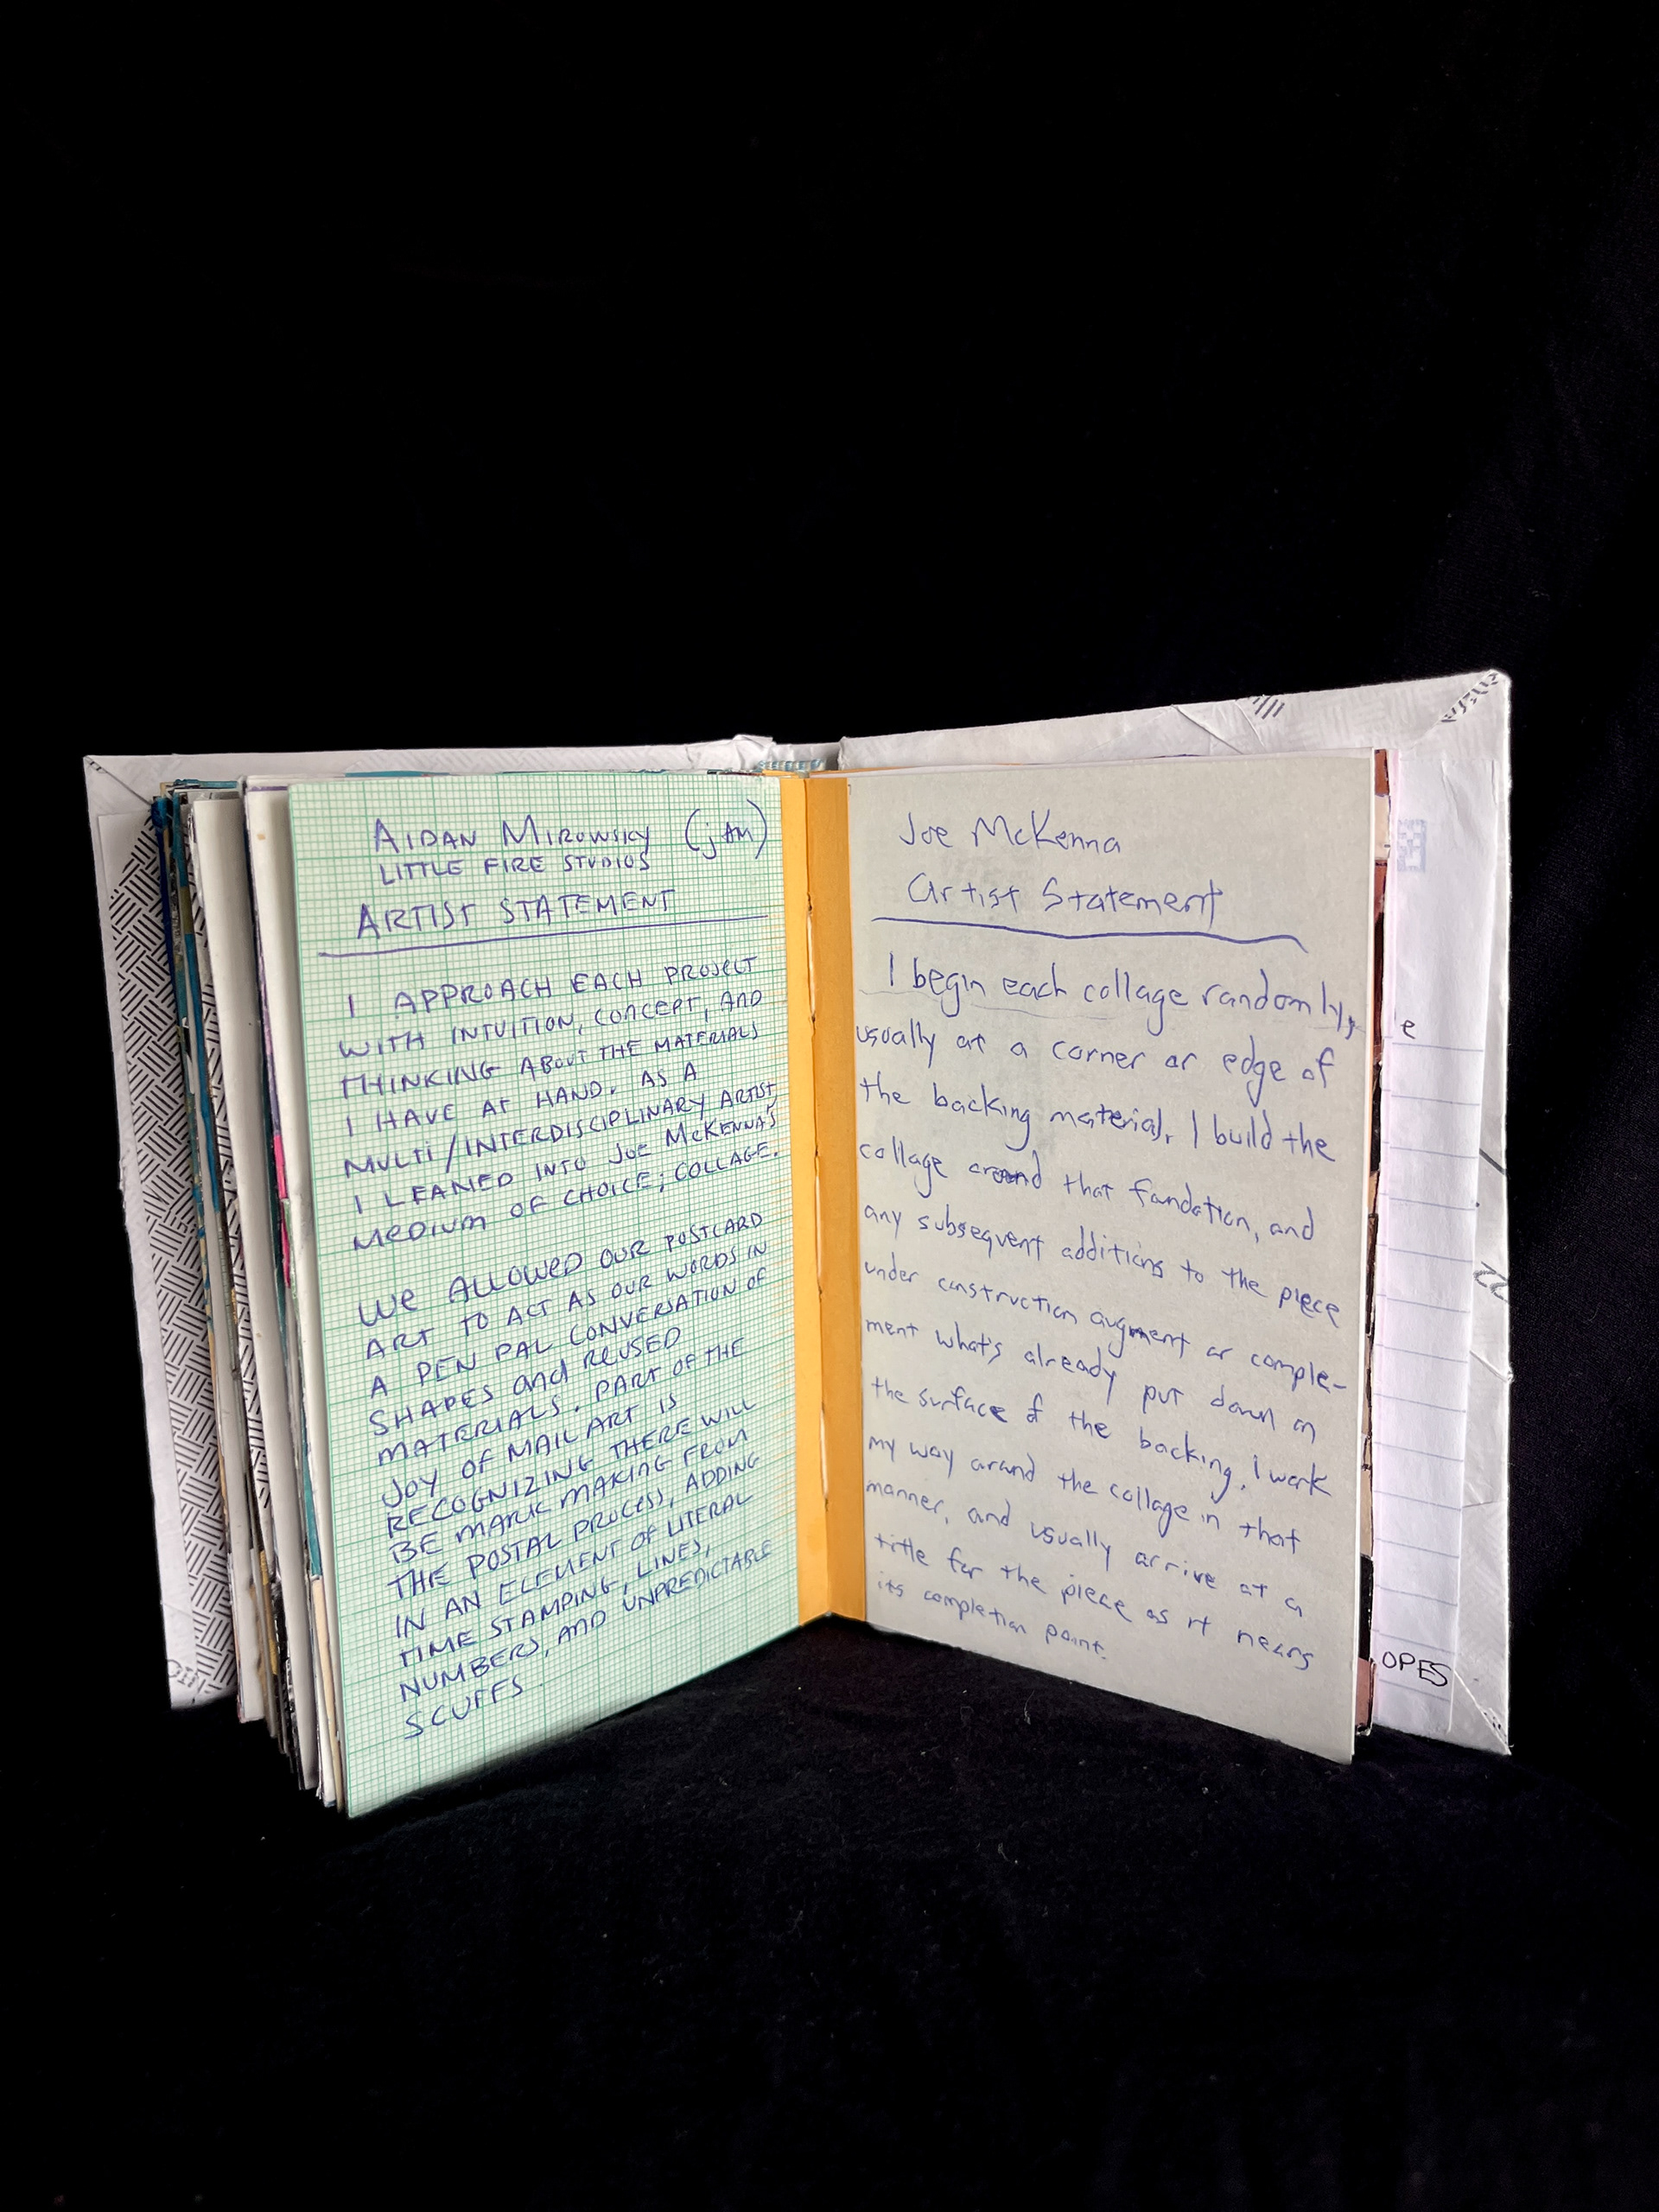 AIDAN MIROWSKY (jAM)
LITTLE FIRE STUDIOS
ARTIST STATEMENT
I APPROACH EACH PROJECT
WITH INTUITION, CONCEPT, AND
THINKING ABOUT THE MATERIALS
I HAVE AT HAND. AS A
MULTI/INTERDISCIPLINARY ARTIST,
I LEANED INTO JOE McKENNA'S
MEDIUM OF CHOICE; COLLAGE.
WE ALLOWED OUR POSTCARD
ART TO ACT AS OUR WORDS IN
A PEN PAL CONVERSATION OF
SHAPES and REUSED
MATERIALS. PART OF THE
JOY OF MAIL ART IS
RECOGNIZING THERE WILL
BE MARK MAKING FROM
THE POSTAL PROCESS, ADDING
IN AN ELEMENT OF LITERAL
TIME STAMPING, LINES,
NUMBERS, AND UNPREDICTABLE
SCUFFS.
Joe McKenna
Artist Statement
I begin each collage randomly,
usually at a corner or edge of
the backing material. I build the
collage around that foundation, and
any subsequent additions to the piece
under construction augment or comple-
ment what's already put down on
the surface of the backing. I work
my way around the collage in that
manner, and usually arrive at a
title for the piece as it nears
its completion point.
e
OPES